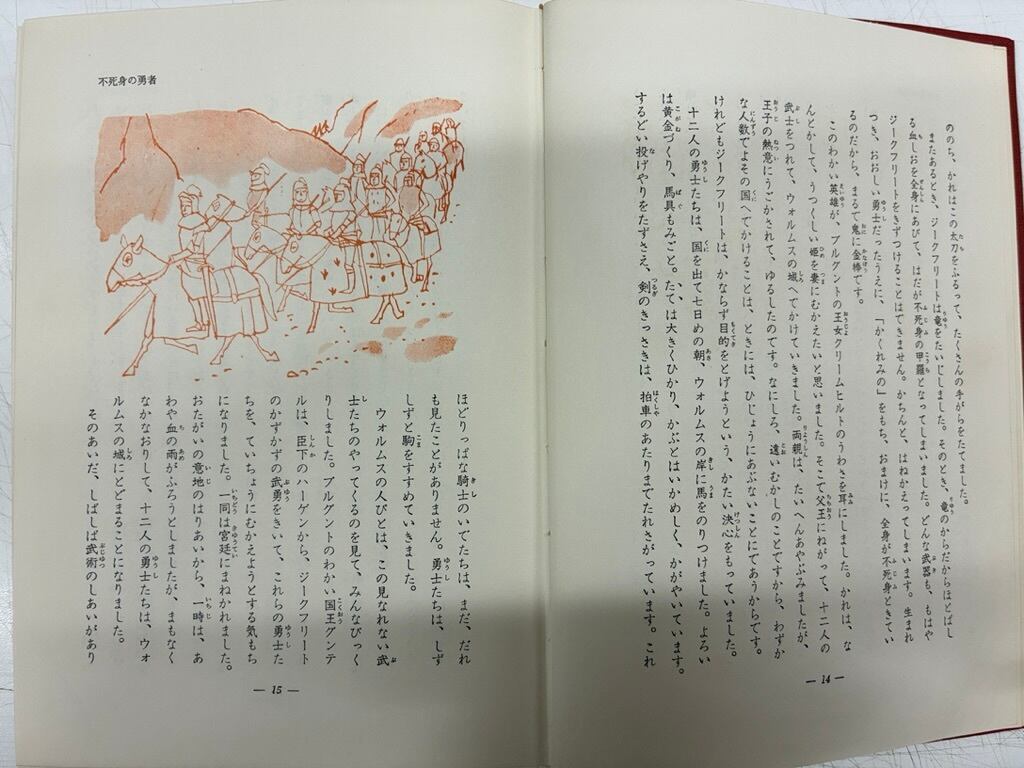 ののち、かれはこの太刀をふるって、たくさんの手がらをたてました。
またあるとき、ジークフリートは竜をたいじしました。そのとき、竜のからだからほとばし
る血しおを全身にあびて、はだが不死身の甲羅となってしまいました。どんな武器も、もはや
ジークフリートをきずつけることはできません。かちんと、はねかえってしまいます。生まれ
つき、おおしい勇士だったうえに、「かくれみの」をもち、おまけに、全身が不死身ときてい
るのだから、まるで鬼に金棒です。
このわかい英雄が、ブルグントの王女クリームヒルトのうわさを耳にしました。かれは、な
んとかして、うつくしい姫を妻にむかえたいと思いました。そこで父王にねがって、十二人の
武士をつれて、ウォルムスの城へでかけていきました。両親は、たいへんあやぶみましたが、
王子の熱意にうごかされて、ゆるしたのです。なにしろ、遠いむかしのことですから、わずか
な人数でよその国へでかけることは、ときには、ひじょうにあぶないことにであうからです。
けれどもジークフリートは、かならず目的をとげようという、かたい決心をもっていました。
十二人の勇士たちは、国を出て七日めの朝、ウォルムスの岸に馬をのりつけました。よろい
は黄金づくり、馬具もみごと。たては大きくひかり、かぶとはいかめしく、かがやいています。
するどい投げやりをたずさえ、剣のきっさきは、拍車のあたりまでたれさがっています。これ
― 14 ―
不死身の勇者
ほどりっぱな騎士のいでたちは、まだ、だれ
も見たことがありません。勇士たちは、しず
しずと駒をすすめていきました。
ウォルムスの人びとは、この見なれない武
士たちのやってくるのを見て、みんなびっく
りしました。ブルグントのわかい国王グンテ
ルは、臣下のハーゲンから、ジークフリート
のかずかずの武勇をきいて、これらの勇士た
ちを、ていちょうにむかえようとする気もち
になりました。一同は宮廷にまねかれました。
おたがいの意地のはりあいから、一時は、あ
わや血の雨がふろうとしましたが、まもなく
なかなおりして、十二人の勇士たちは、ウォ
ルムスの城にとどまることになりました。
そのあいだ、しばしば武術のしあいがあり
― 15 ―